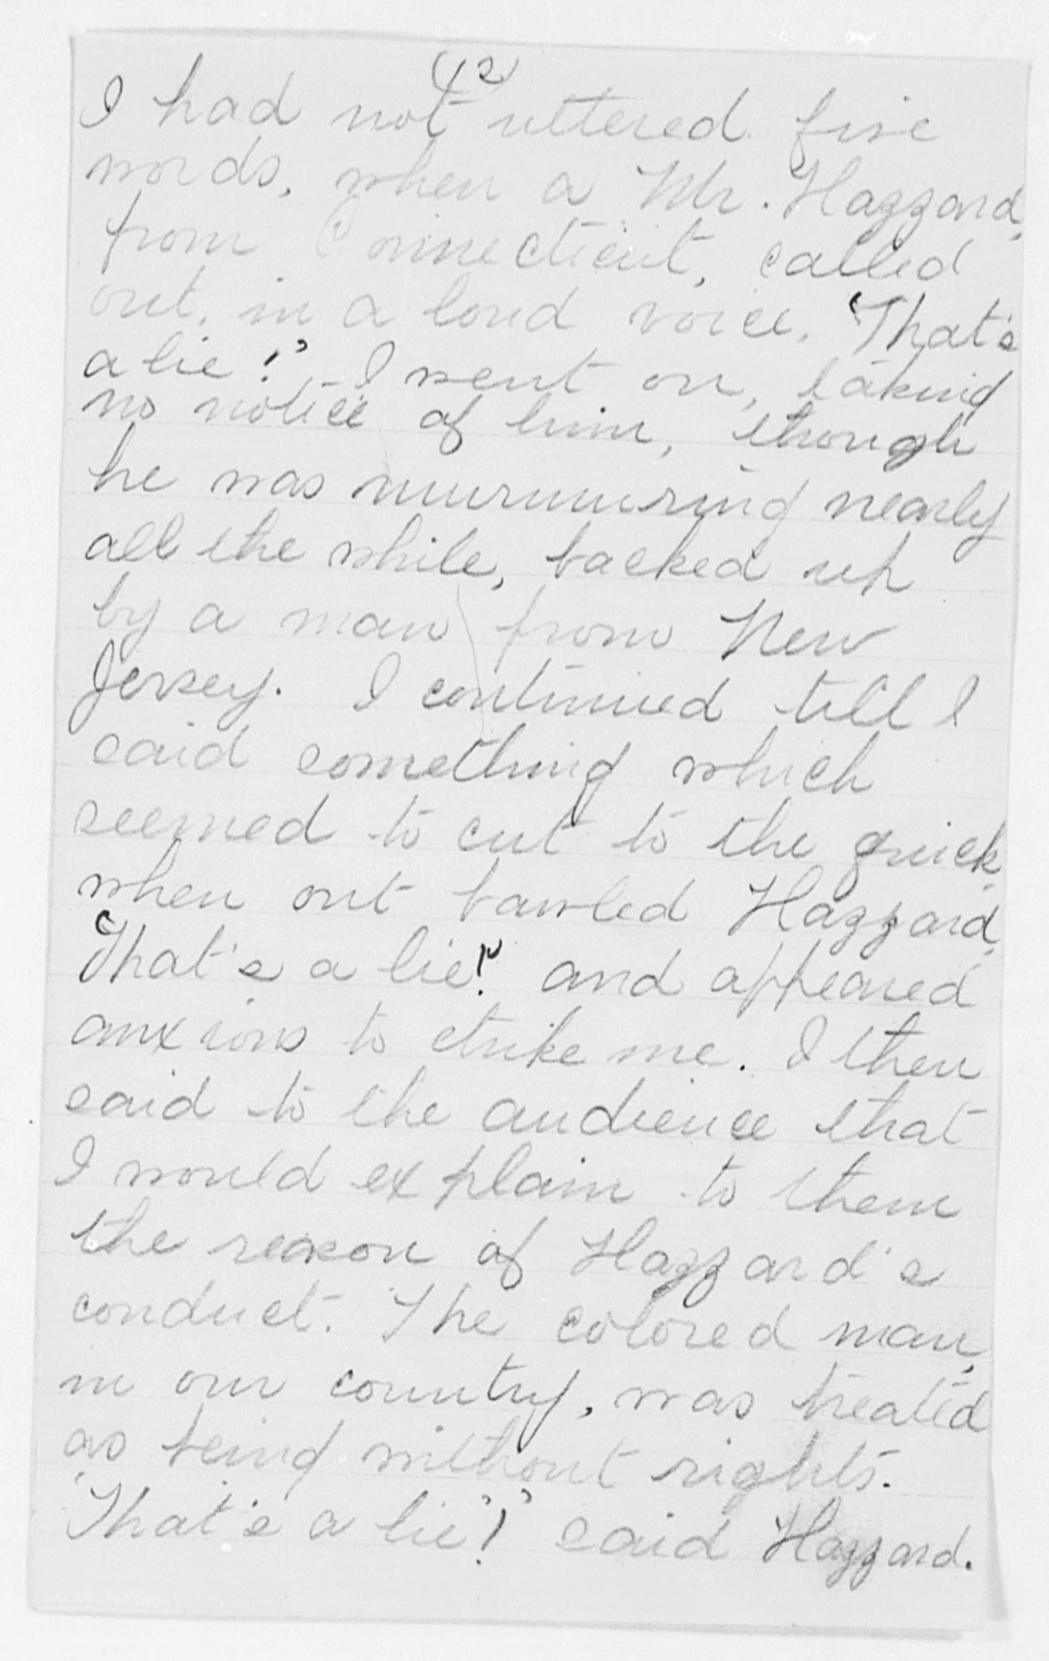 42
I had not uttered five
words, when a Mr. Hazzard,
from Connecticut, called
out, in a loud voice, 'That's
a lie!' I went on, taking
no notice of him, though
he was murmuring nearly
all the while, backed up
by a man from New
Jersey. I continued till I
said something which
seemed to cut to the quick,
when out bawled Hazzard,
'That's a lie!' and appeared
anxious to strike me. I then
said to the audience that
I would explain to them
the reason of Hazzard's
conduct. The colored man,
in our country, was treated
as being without rights.
'That's a lie'! said Hazzard.